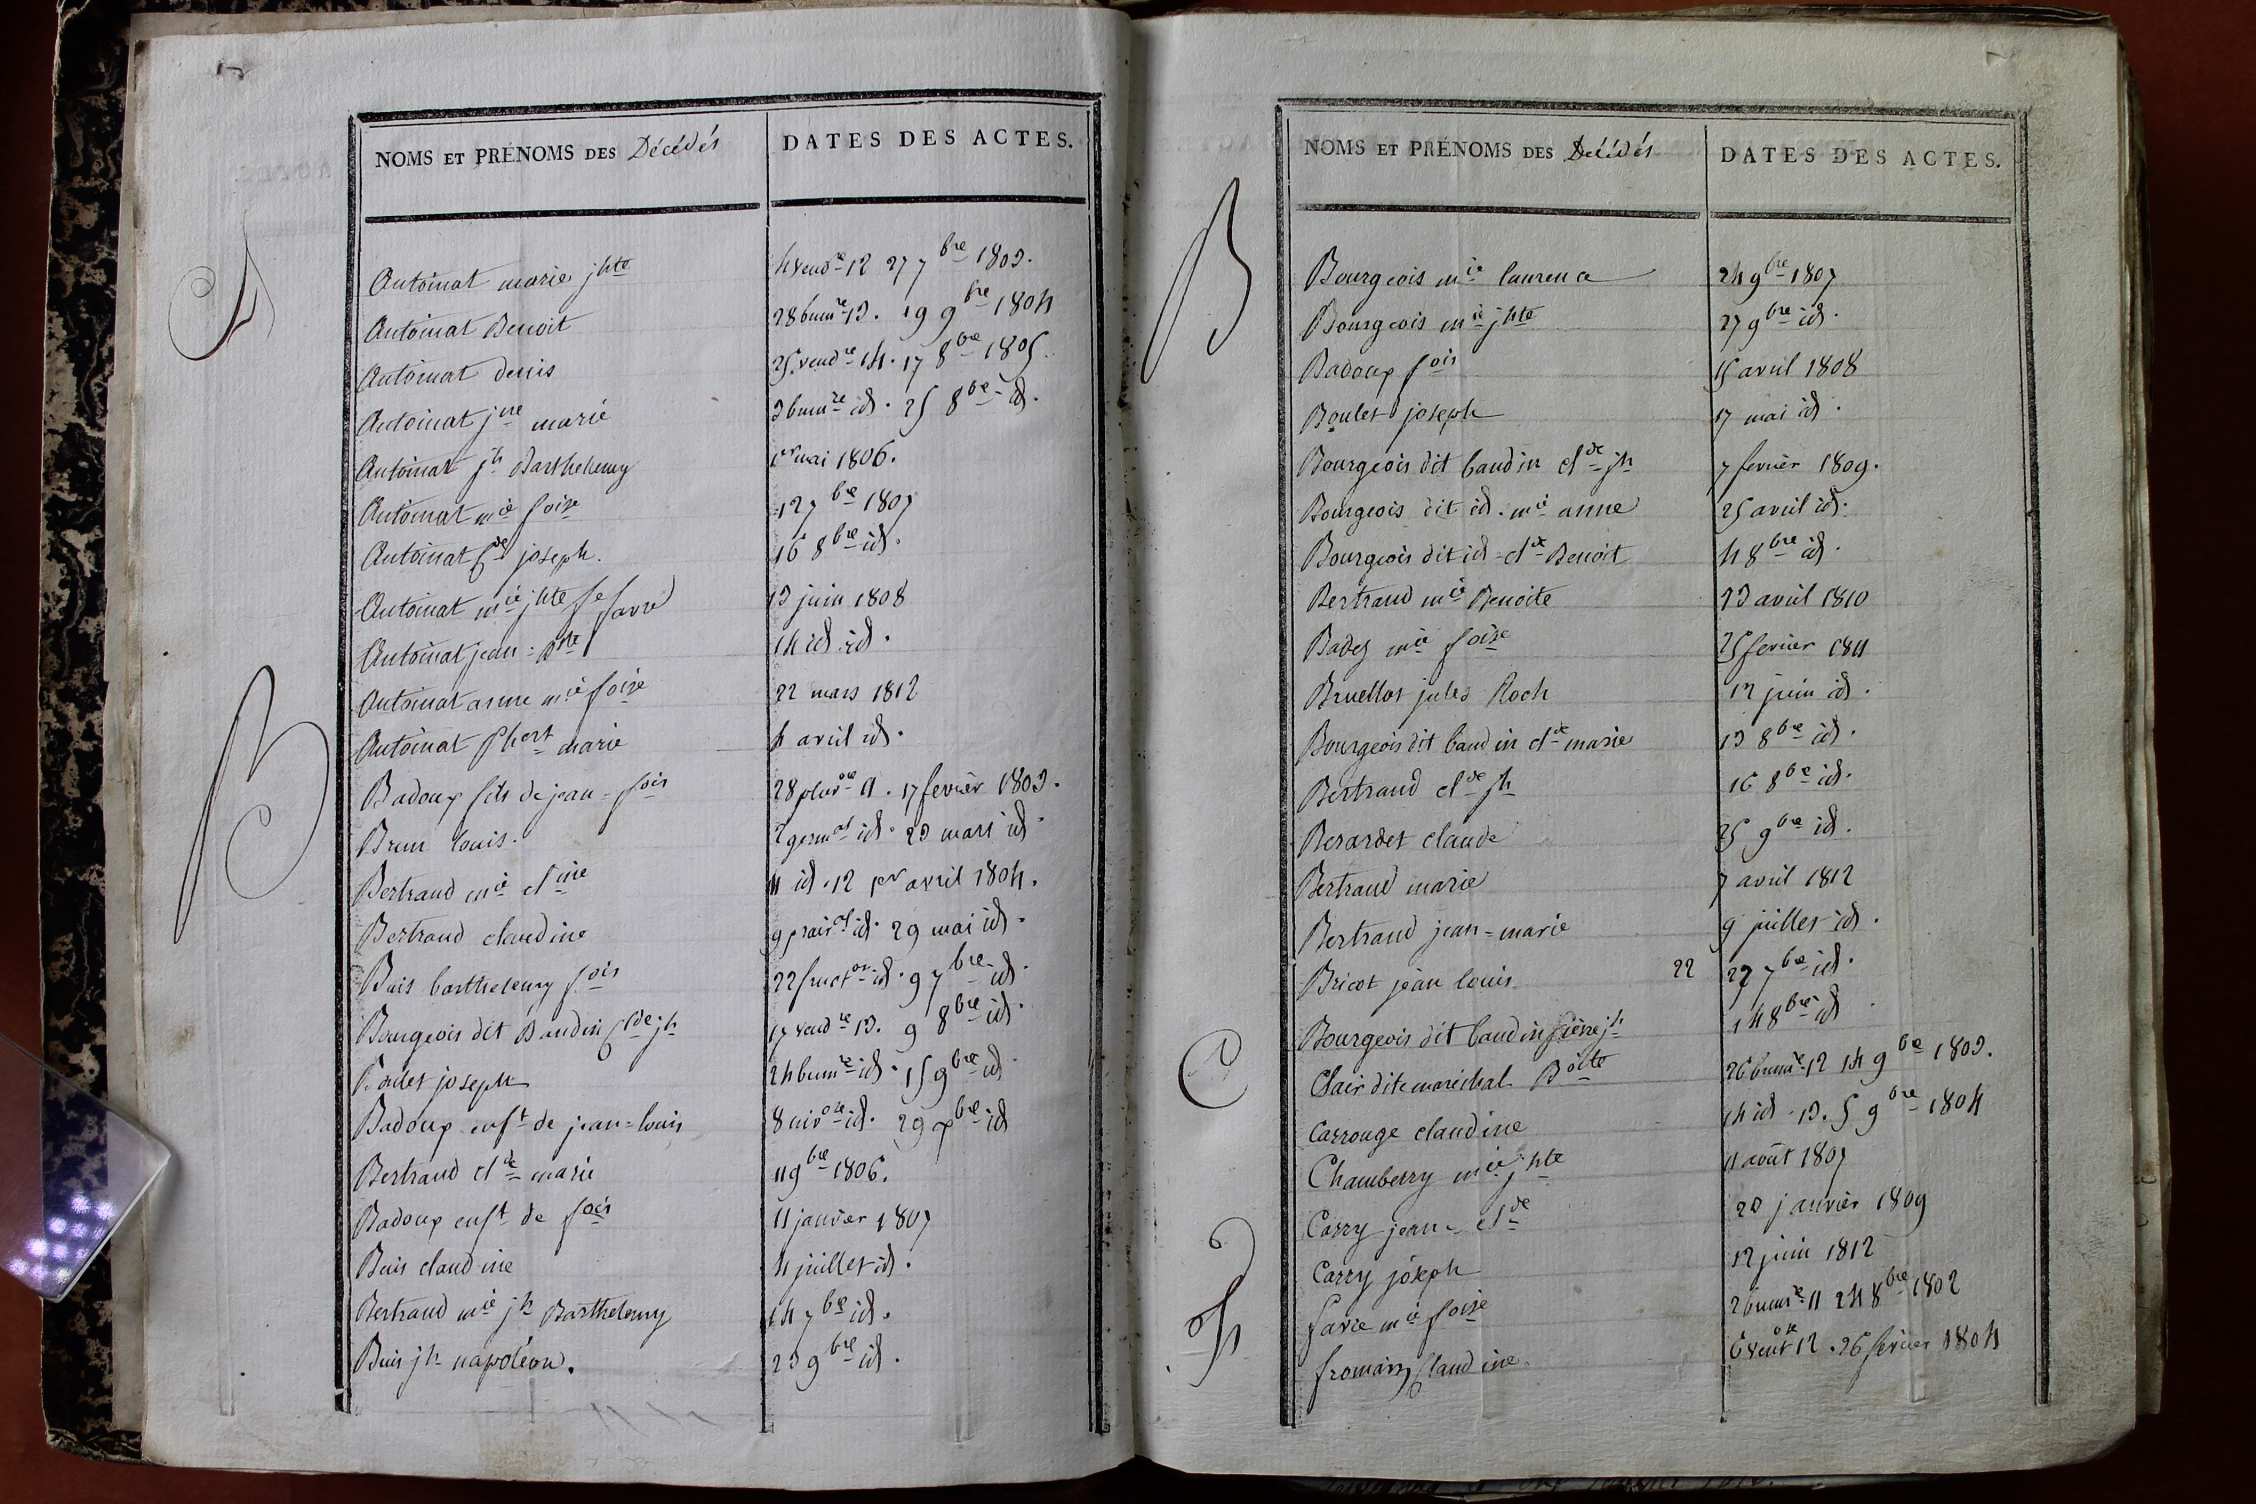 NOMS ET PRÉNOMS DES Décédés
DATES DES ACTES.
A
Antoinat marie jhte 4 vendre 12 27 7bre 1803.
Antoinat Benoit 28 brumre 13. 19 9bre 1804
Antoinat denis 25 vendre 14. 17 8bre 1805
Antoinat jne marie 3 brumre id. 25 8bre id.
Antoinat jh Barthelemy 1er mai 1806.
Antoinat mie foise 12 7bre 1807
Antoinat Cde joseph. 16 8bre id.
Antoinat mie jhte fe favre 13 juin 1808
Antoinat jean = Bte 14 id id.
Antoinat anne mie foise 22 mars 1812
Antoinat Phert marie 4 avril id.
B
Badoux fils de jean = fois 28 pluvose 11. 17 fevrier 1803.
Brun louis. 2 germal id. 23 mars id.
Bertrand mie Cline 11 id. 12 1er avril 1804.
Bertrand claudine 9 prairal id. 29 mai id.
Buis barthelemy fois 22 fructor id. 9 7bre id.
Bourgeois dit Baudin Clde jh 17 vendre 13. 9 8bre id.
Boulet joseph 24 brumre id. 15 9bre id
Badoux enft de jean = louis 8 nivose id. 29 Xbre id
Bertrand Clde marie 11 9bre 1806.
Badoux enft de fois 11 janvier 1807
Buis claudine 4 juillet id.
Bertrand mie jh Barthelemy 14 7bre id.
Buis jh napoléon. 23 9bre id.
NOMS ET PRÉNOMS DES Décédés
DATES DES ACTES.
B
Bourgeois mie laurence 24 9bre 1807
Bourgeois mie jhte 27 9bre id.
Badoux fois 15 avril 1808
Boulet joseph 17 mai id.
Bourgeois dit baudin clde jh 7 fevrier 1809.
Bourgeois dit id. mie anne 25 avril id.
Bourgeois dit id = clde Benoit 4 8bre id.
Bertrand mie Benoite 23 avril 1810
Badey mie foise 25 fevrier 1811
Bruellot jules Roch 12 juin id.
Bourgeois dit baudin clde marie 13 8bre id.
Bertrand clde jh 16 8bre id.
Berardet claude 25 9bre id.
Bertrand marie 7 avril 1812
Bertrand jean = marie 9 juillet id.
Bricot jean louis 22 27 7bre id.
Bourgeois dit baudin pierre jh 14 8bre id
C
Clair dite maréchal Boite 26 brumre 12 14 9bre 1803.
Carrouge claudine 14 id. 13. 5 9bre 1804
Chamberry mie jhte 11 août 1807
Carry jean = Clde 23 janvier 1809
Carry joseph 12 juin 1812
F
favre mie foise 2 brumre 11 24 8bre 1802
fromain Claudine 6 ventose 12. 26 fevrier 1804